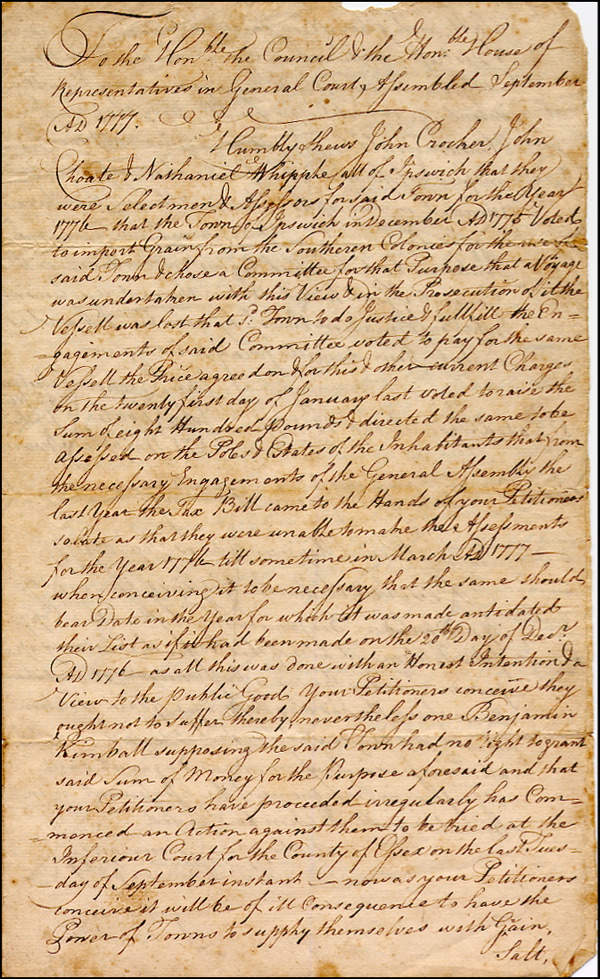 To the Honble. the Council & the Honble. House of
Representatives in General Court, Assembled September
AD 1777.
Humbly Shews John Crocker, John
Choate & Nathaniel Whipple all of Ipswich that they
were Selectmen & Assessors for said Town for the Year
1776 that the Town of Ipswich in December AD 1775 Voted
to import Grain from the Southeren Colonies for the use of
said Town & chose a Committee for that Purpose that a Voyage
was undertaken with this View & in the Prosecution of it the
Vessell was lost that sd. Town to do Justice & fullfill the En-
-gagements of said Committee voted to pay for the same
Vessell the Price agreed on & for this & other current Charges
on the twenty first day of January last voted to raise the
Sum of eight Hundred Pounds & directed the same to be
assessed on the Poles & Estates of the Inhabitants that from
the necessary Engagements of the General Assembly the
last Year the Tax Bill came to the Hands of your Petitioners
so late as that they were unable to make their Assessments
for the Year 1776 till sometime in March AD 1777 —
when conceiving it to be necessary that the same should
bear Date in the Year for which it was made antidated
their List as if it had been made on the 20th Day of Decr.
AD 1776 — as all this was done with an Honest Intention & a
View to the Public Good Your Petitioners conceive they
ought not to suffer thereby nevertheless one Benjamin
Kimball supposing the said Town had no right to grant
said Sum of Money for the Purpose aforesaid and that
your Petitioners have proceeded irregularly has Com-
-menced an Action against them to be tried at the
Inferiour Court for the County of Essex on the last Tues-
-day of September instant — now as your Petitioners
conceive it will be of ill Consequence to have the
Power of Towns to supply themselves with Grain,
Salt,